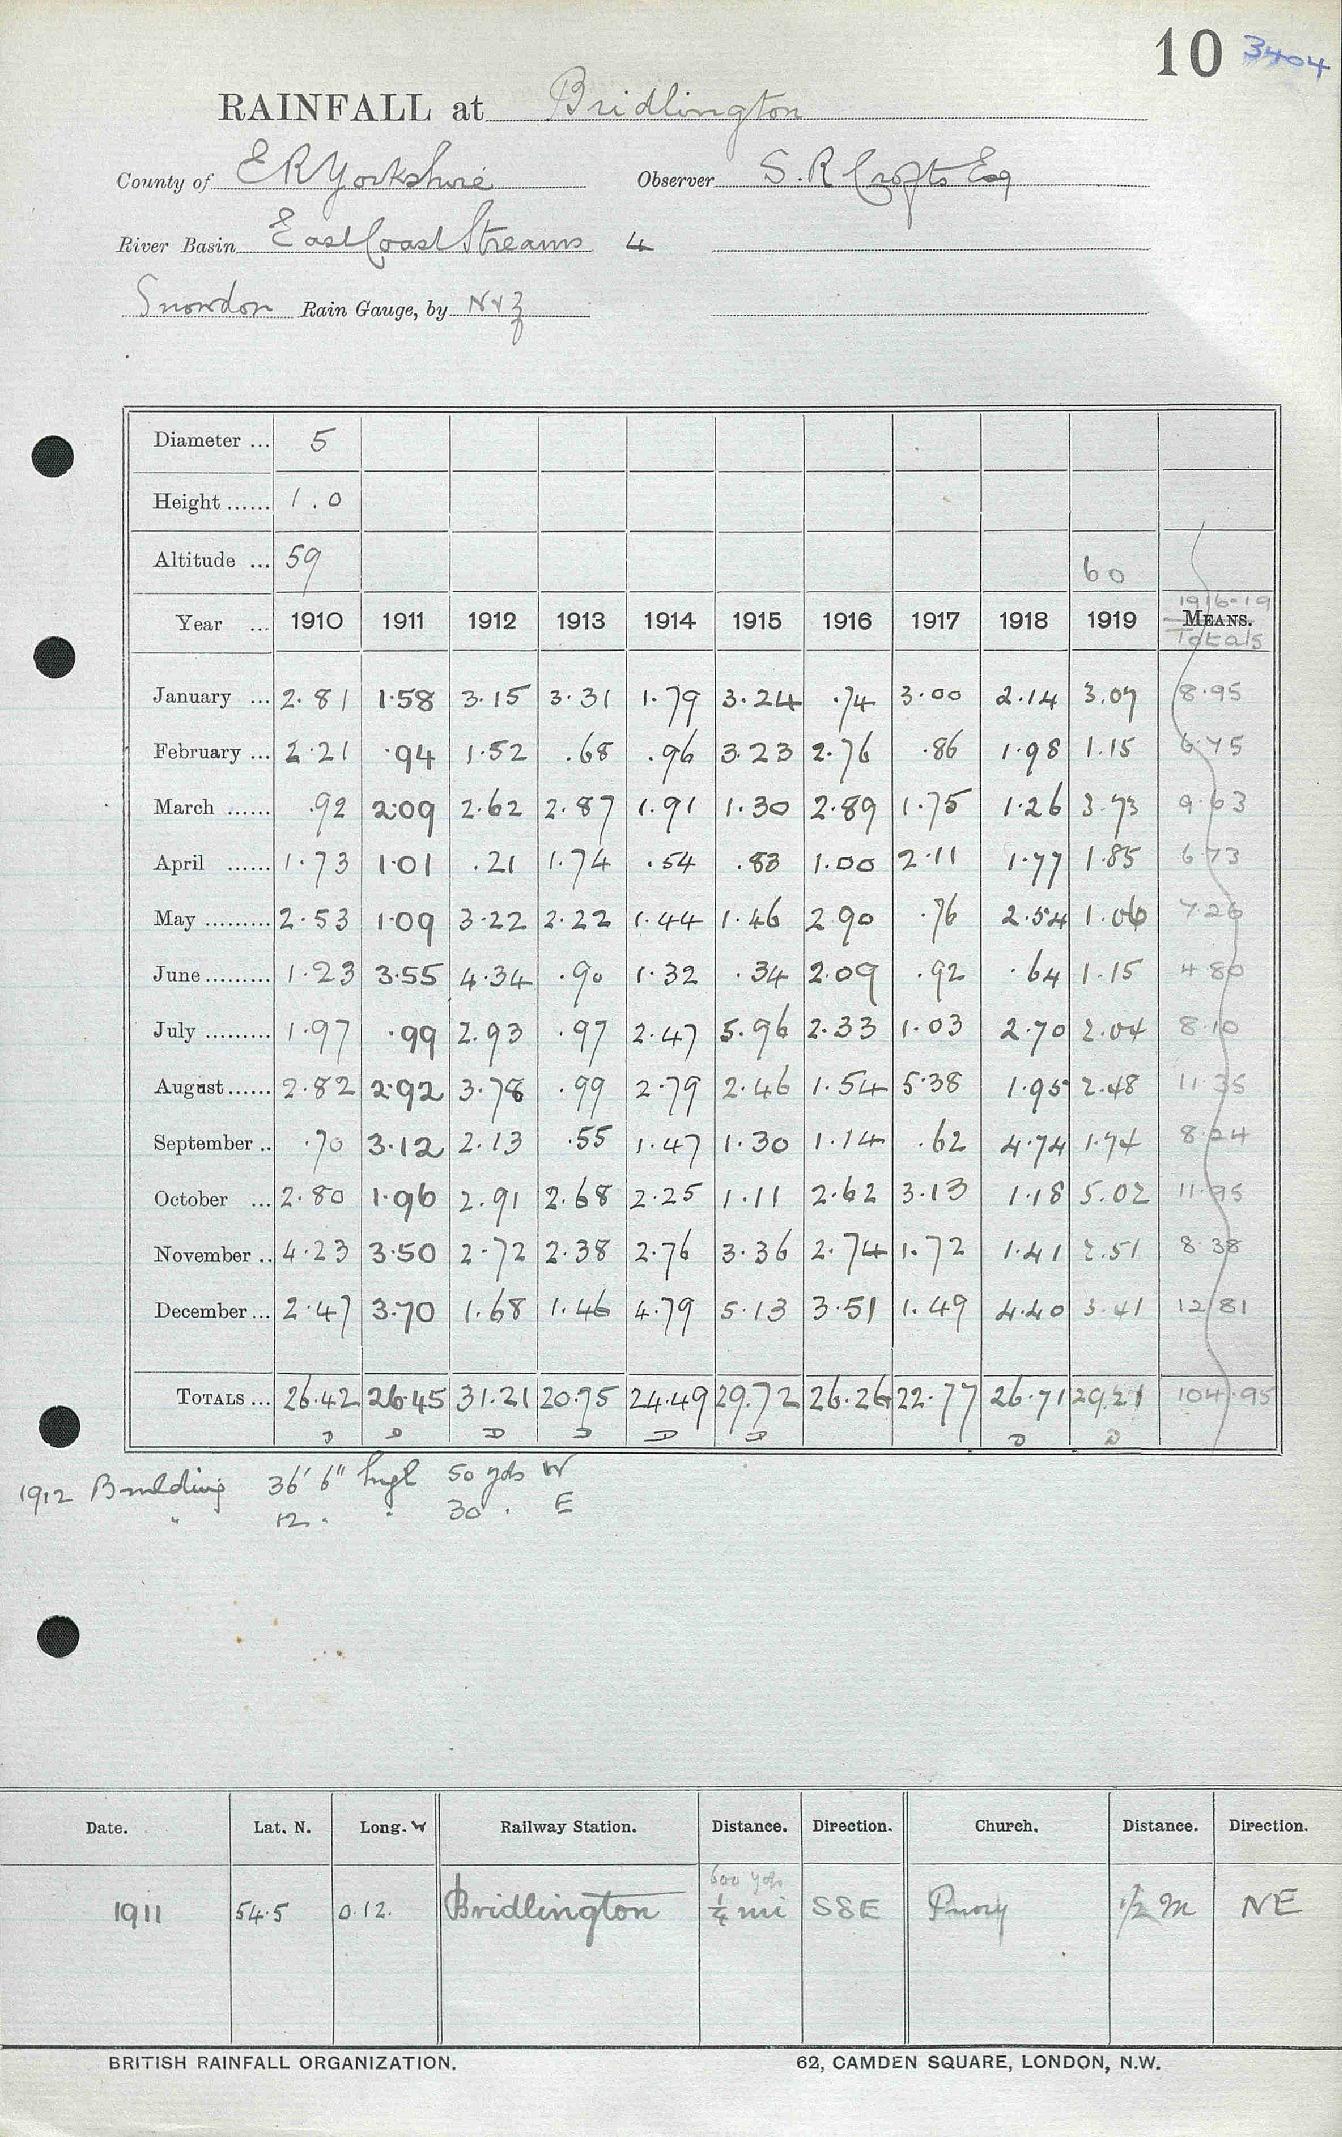 10 3404
RAINFALL at Bridlington
County of E R Yorkshire Observer S. R Crofts Esq
River Basin East Coast Streams 4
Snowdon Rain Gauge, by N & Z
Diameter ... 5
Height ...... 1.0
Altitude ... 59 60
Year ... 1910 1911 1912 1913 1914 1915 1916 1917 1918 1919 1916-19 MEANS. Totals
January ... 2.81 1.58 3.15 3.31 1.79 3.24 .74 3.00 2.14 3.07 8.95
February ... 2.21 .94 1.52 .68 .96 3.23 2.76 .86 1.98 1.15 6.75
March ...... .92 2.09 2.62 2.87 1.91 1.30 2.89 1.75 1.26 3.73 9.63
April ...... 1.73 1.01 .21 1.74 .54 .83 1.00 2.11 1.77 1.85 6.73
May ......... 2.53 1.09 3.22 2.22 1.44 1.46 2.90 .76 2.54 1.06 7.26
June ......... 1.23 3.55 4.34 .90 1.32 .34 2.09 .92 .64 1.15 4.80
July ......... 1.97 .99 2.93 .97 2.47 5.96 2.33 1.03 2.70 2.04 8.10
August ...... 2.82 2.92 3.78 .99 2.79 2.46 1.54 5.38 1.95 2.48 11.35
September .. .70 3.12 2.13 .55 1.47 1.30 1.14 .62 4.74 1.74 8.24
October ... 2.80 1.96 2.91 2.68 2.25 1.11 2.62 3.13 1.18 5.02 11.95
November .. 4.23 3.50 2.72 2.38 2.76 3.36 2.74 1.72 1.41 2.51 8.38
December ... 2.47 3.70 1.68 1.46 4.79 5.13 3.51 1.49 4.40 3.41 12.81
TOTALS ... 26.42 26.45 31.21 20.75 24.49 29.72 26.26 22.77 26.71 29.21 104.95
D D D D D D D D
1912 Building 36' 6" high 50 yds W
" 12 " " 30 " E
Date. Lat. N. Long. W Railway Station. Distance. Direction. Church. Distance. Direction.
600 yds
1911 54.5 0.12. Bridlington ¼ mi SSE Priory ½ m NE
BRITISH RAINFALL ORGANIZATION. 62, CAMDEN SQUARE, LONDON, N.W.